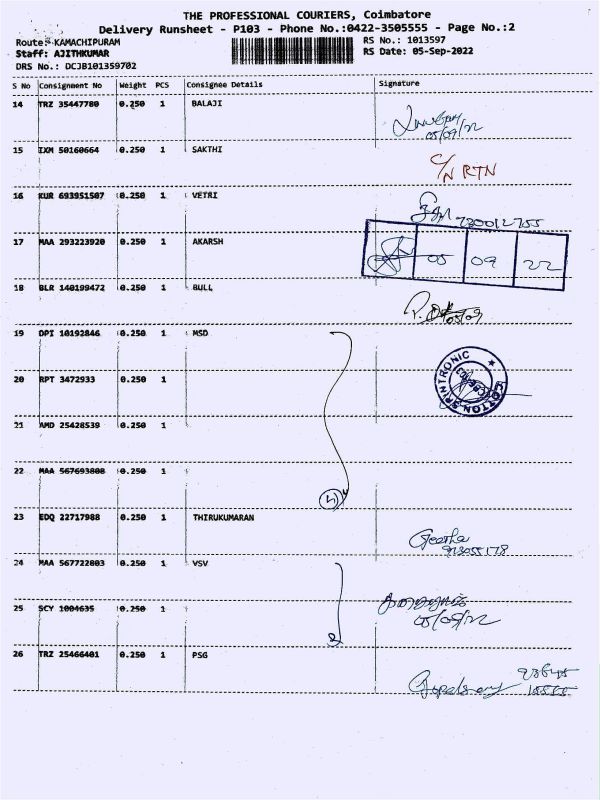 THE PROFESSIONAL COURIERS, Coimbatore
Delivery Runsheet - P103 - Phone No.:0422-3505555 - Page No.:2
Route:-KAMACHIPURAM RS No.: 1013597
Staff: AJITHKUMAR RS Date: 05-Sep-2022
DRS No.: DCJB101359702
S No Consignment No Weight PCS Consignee Details Signature
14 TRZ 35447780 0.250 1 BALAJI
05/09/22
15 IXM 50160664 0.250 1 SAKTHI
C/N RTN
16 KUR 693951507 0.250 1 VETRI
17 MAA 293223920 0.250 1 AKARSH
05 09 22
18 BLR 140199472 0.250 1 BULL
19 DPI 10192846 0.250 1 MSD
20 RPT 3472933 0.250 1
COTTON SPINTRONIC
21 AMD 25428539 0.250 1
22 MAA 567693808 0.250 1
23 EDQ 22717988 0.250 1 THIRUKUMARAN
Geetha
24 MAA 567722803 0.250 1 VSV
25 SCY 1004635 0.250 1
05/09/22
26 TRZ 25466401 0.250 1 PSG